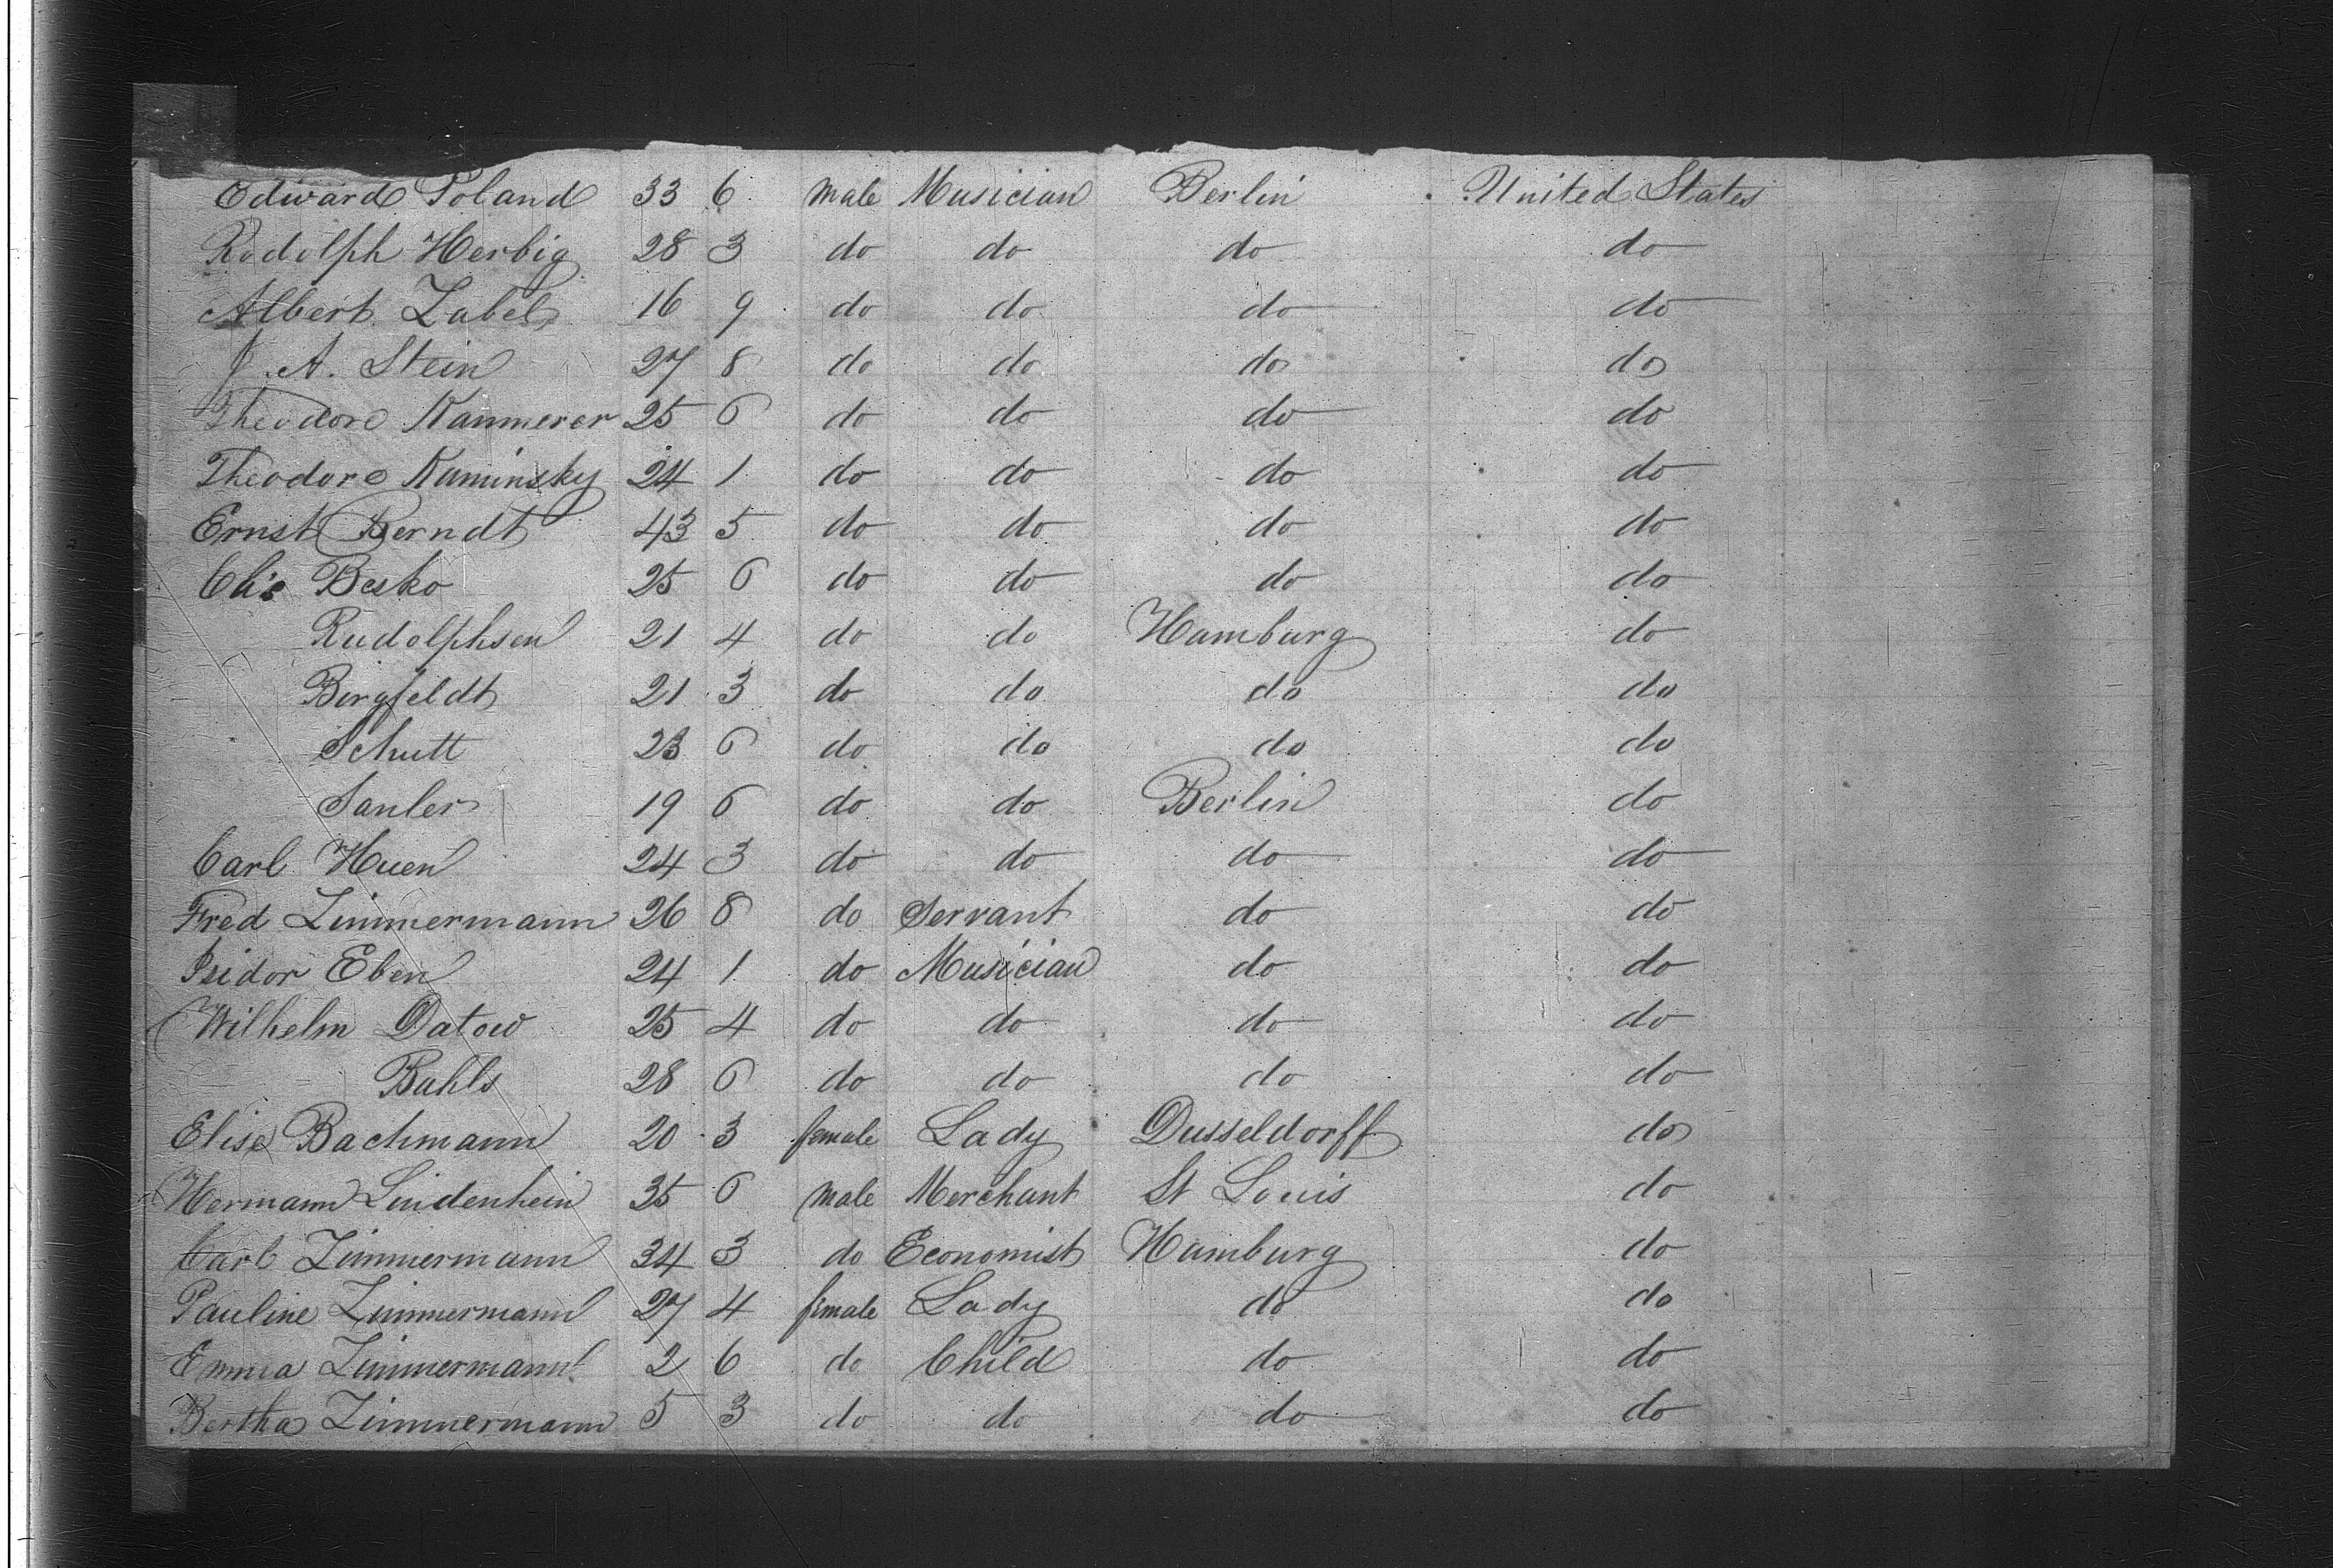 Edward Poland 33 6 male Musician Berlin United States
Rudolph Herbig 28 3 do do do do
Albert Zabel 16 9 do do do do
J. A. Stein 27 8 do do do do
Theodore Kammerer 25 6 do do do do
Theodore Kaminsky 24 1 do do do do
Ernst Berndt 43 5 do do do do
Besko 25 6 do do do do
Rudolphsen 21 4 do do Hamburg do
Birgfeldt 21 3 do do do do
Schutt 23 6 do do do do
Sanler 19 6 do do Berlin do
Carl Huen 24 3 do do do do
Fred Zimmermann 26 8 do Servant do do
Isidor Eben 24 1 do Musician do do
Wilhelm Datow 25 4 do do do do
Buhls 28 6 do do do do
Elise Bachmann 20 3 female Lady Dusseldorff do
Hermann Lindenhein 35 6 male Merchant St Louis do
Carl Zimmermann 34 3 do Economist Hamburg do
Pauline Zimmermann 27 4 female Lady do do
Emma Zimmermann 2 6 do Child do do
Bertha Zimmermann 5 3 do do do do